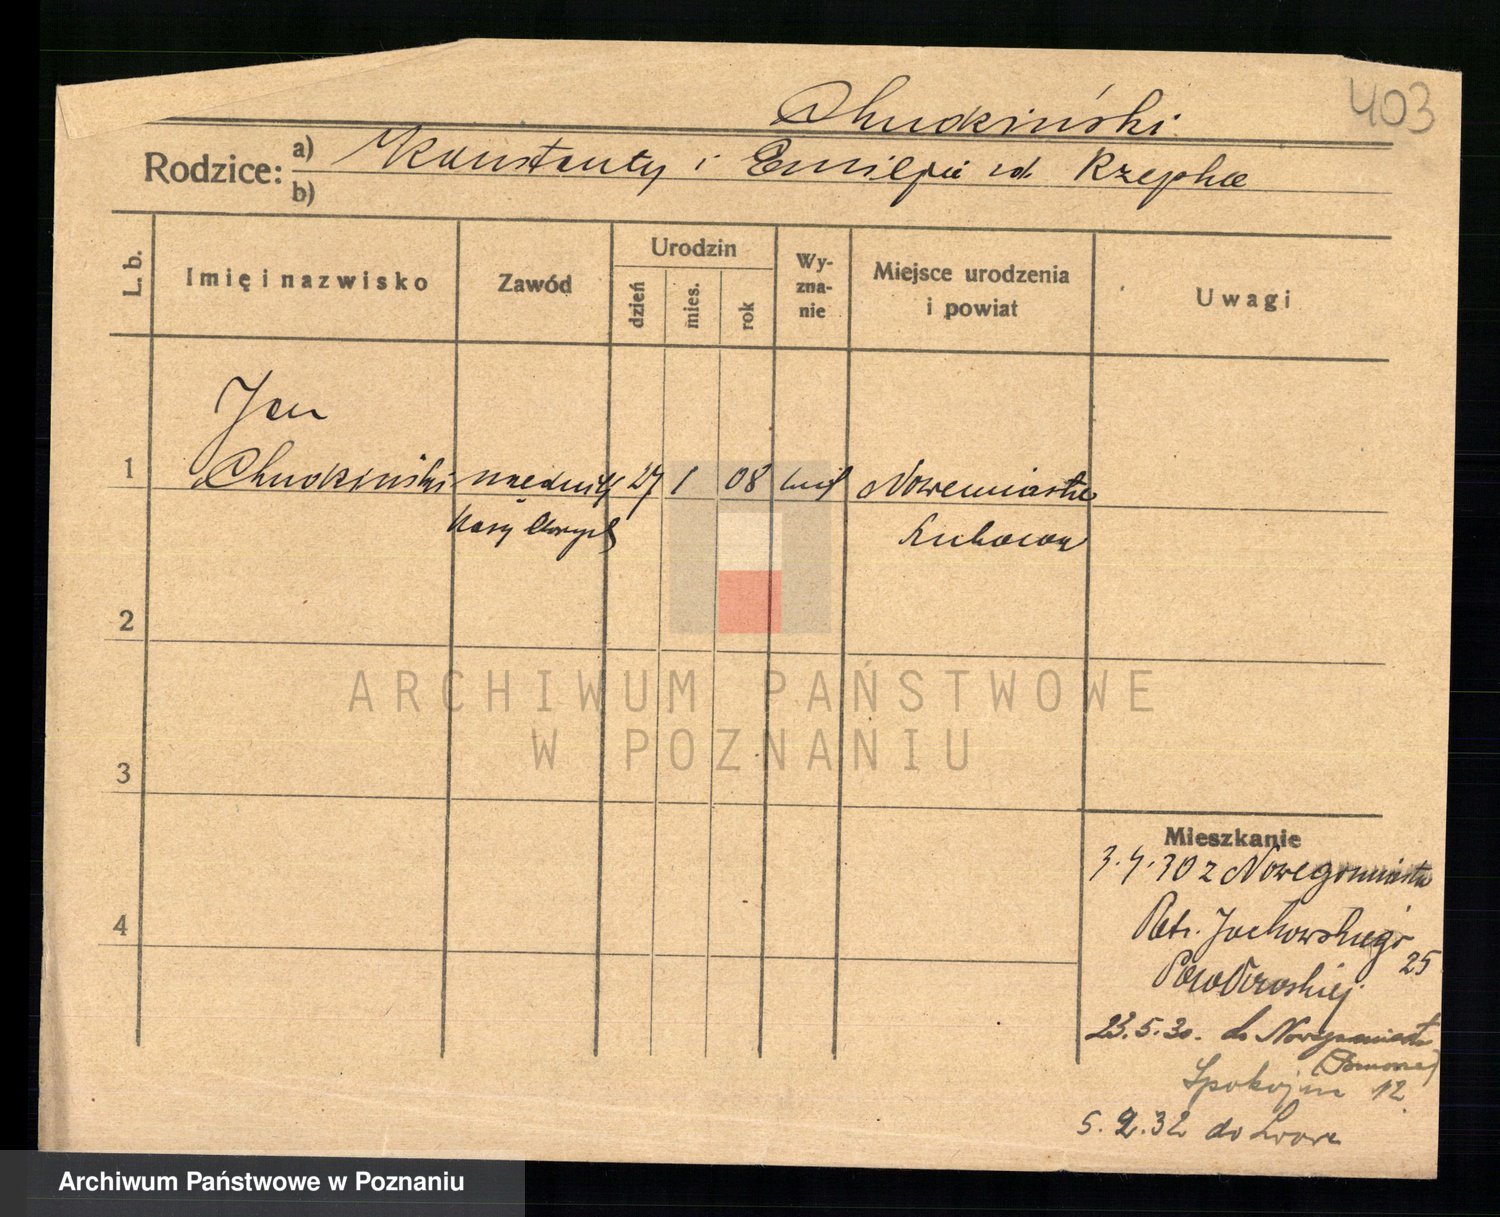 403
Chudziński
Rodzice: a) Konstanty i Emilja zd. Rzepka
b)
L. b.
Imię i nazwisko
Zawód
Urodzin
dzień
mies.
rok
Wy-
zna-
nie
Miejsce urodzenia
i powiat
Uwagi
Jan
1 Chudziński urzednik 27 1 08 Nowemiasto
Kasy Chorych Lubawa
2
3
4
Mieszkanie
3.4.30 z Nowegomiasta
Jackowskiego
25
23.5.30. do Nowegomiasta
(Pomorze)
Spokojna 12
5. 2. 32 do
ARCHIWUM PAŃSTWOWE
W POZNANIU
Archiwum Państwowe w Poznaniu